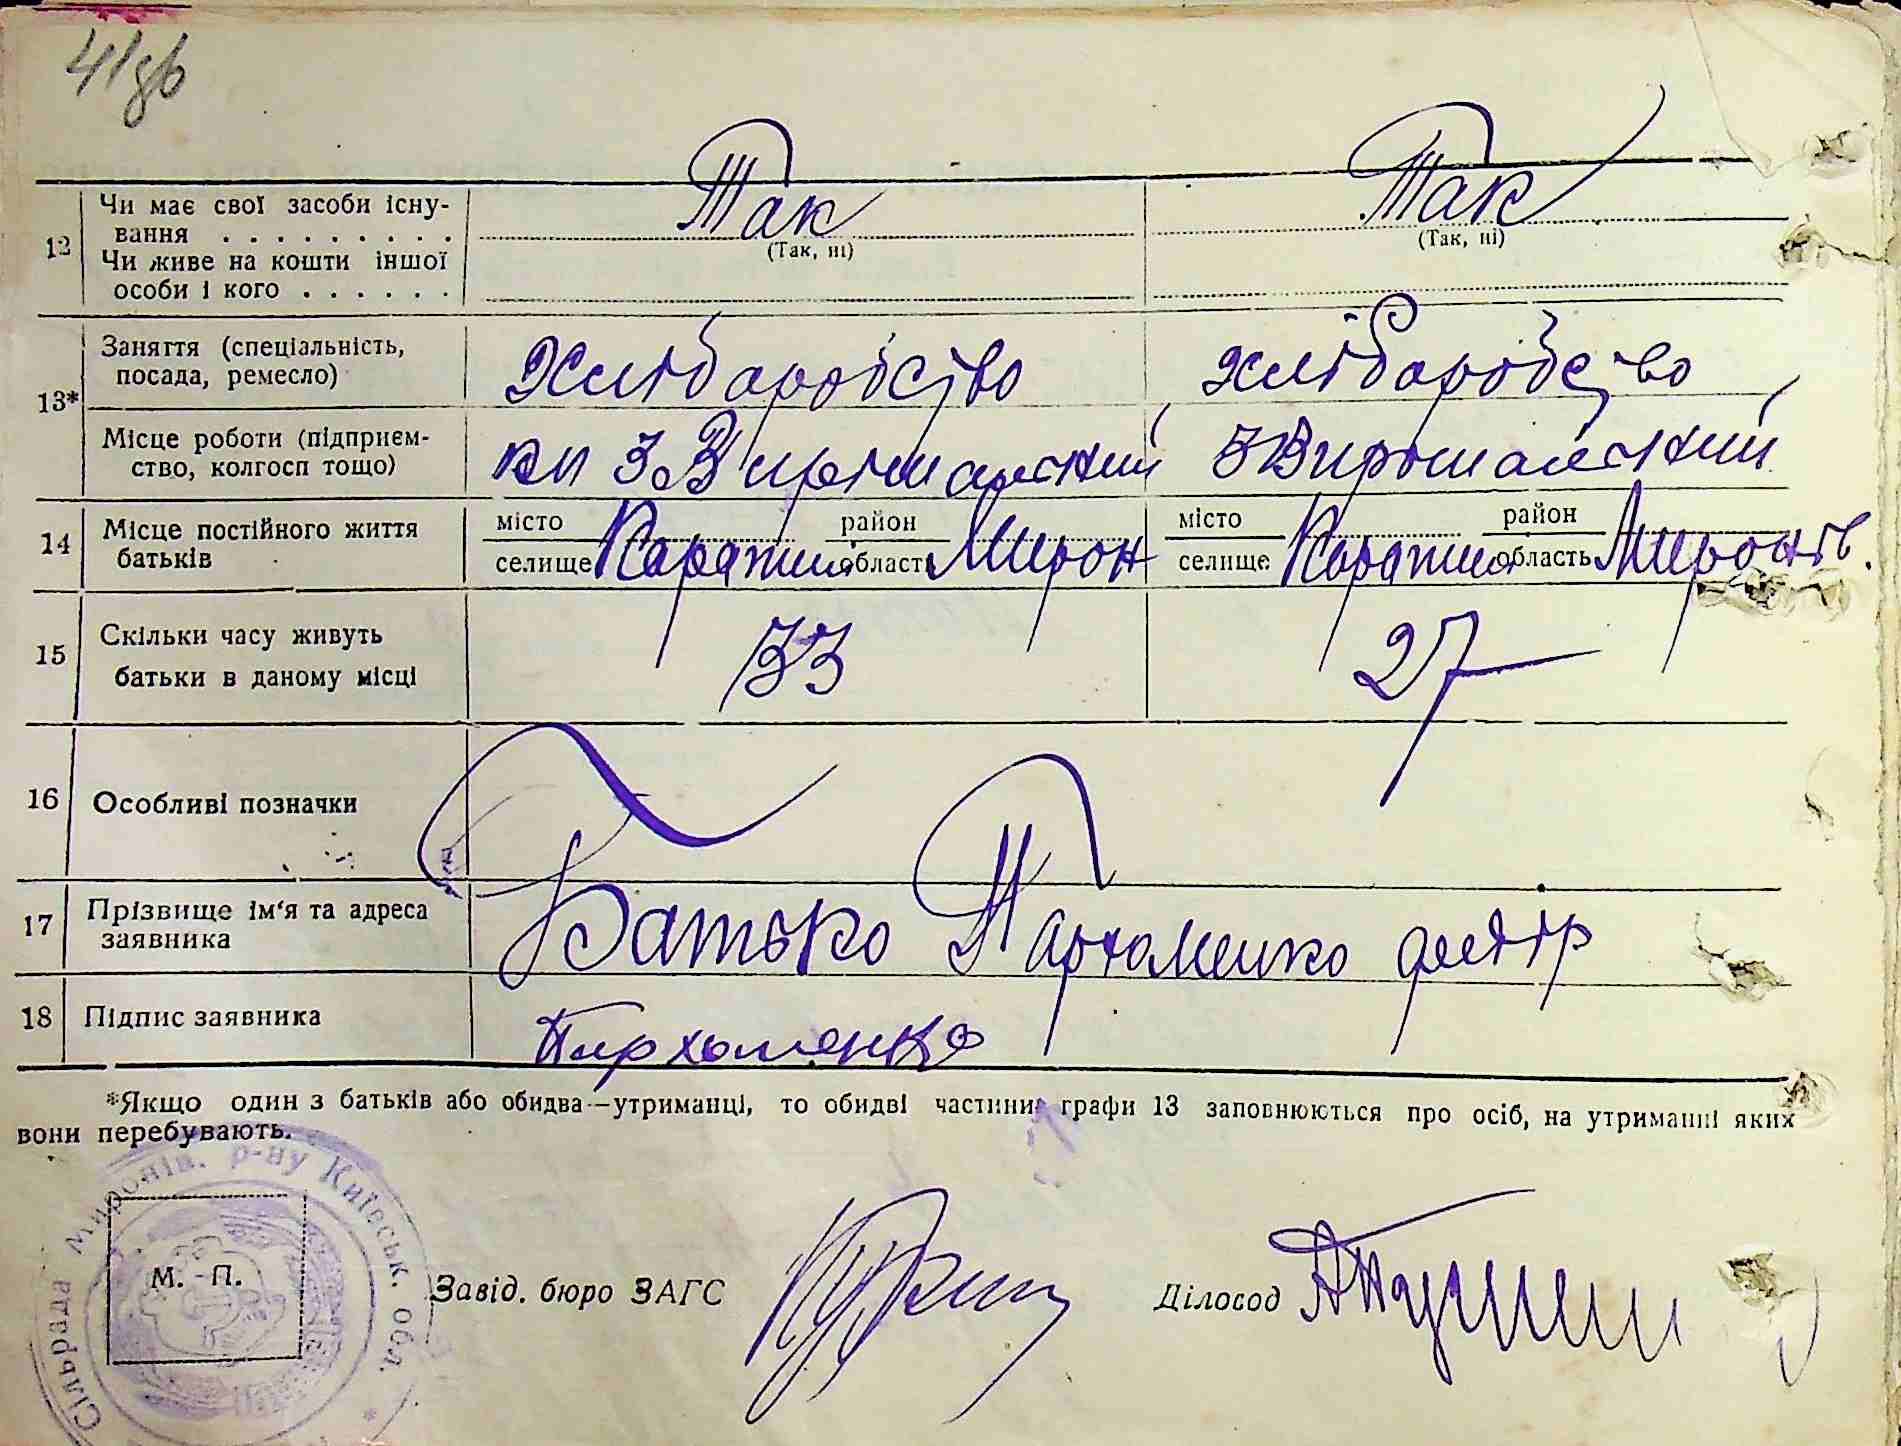 41зв
12 Чи має свої засоби існу-
вання . . . . . . . . . Так Так
(Так, ні) (Так, ні)
Чи живе на кошти іншої
особи і кого . . . . . .
13* Заняття (спеціальність,
посада, ремесло) Хлібаробство хлібаробство
Місце роботи (підприєм-
ство, колгосп тощо)
14 Місце постійного життя
батьків
місто район місто район
селище Карапиш область Мирон селище Карапиш область Миронів.
15 Скільки часу живуть
батьки в даному місці 33 27
16 Особливі позначки
17 Прізвище ім'я та адреса
заявника Батько Пархоменко
18 Підпис заявника Пархоменко
*Якщо один з батьків або обидва—утриманці, то обидві частини графи 13 заповнюються про осіб, на утриманні яких
вони перебувають.
Сільрада Миронів. р-ну Київськ. обл.
М. П.
Завід. бюро ЗАГС Діловод